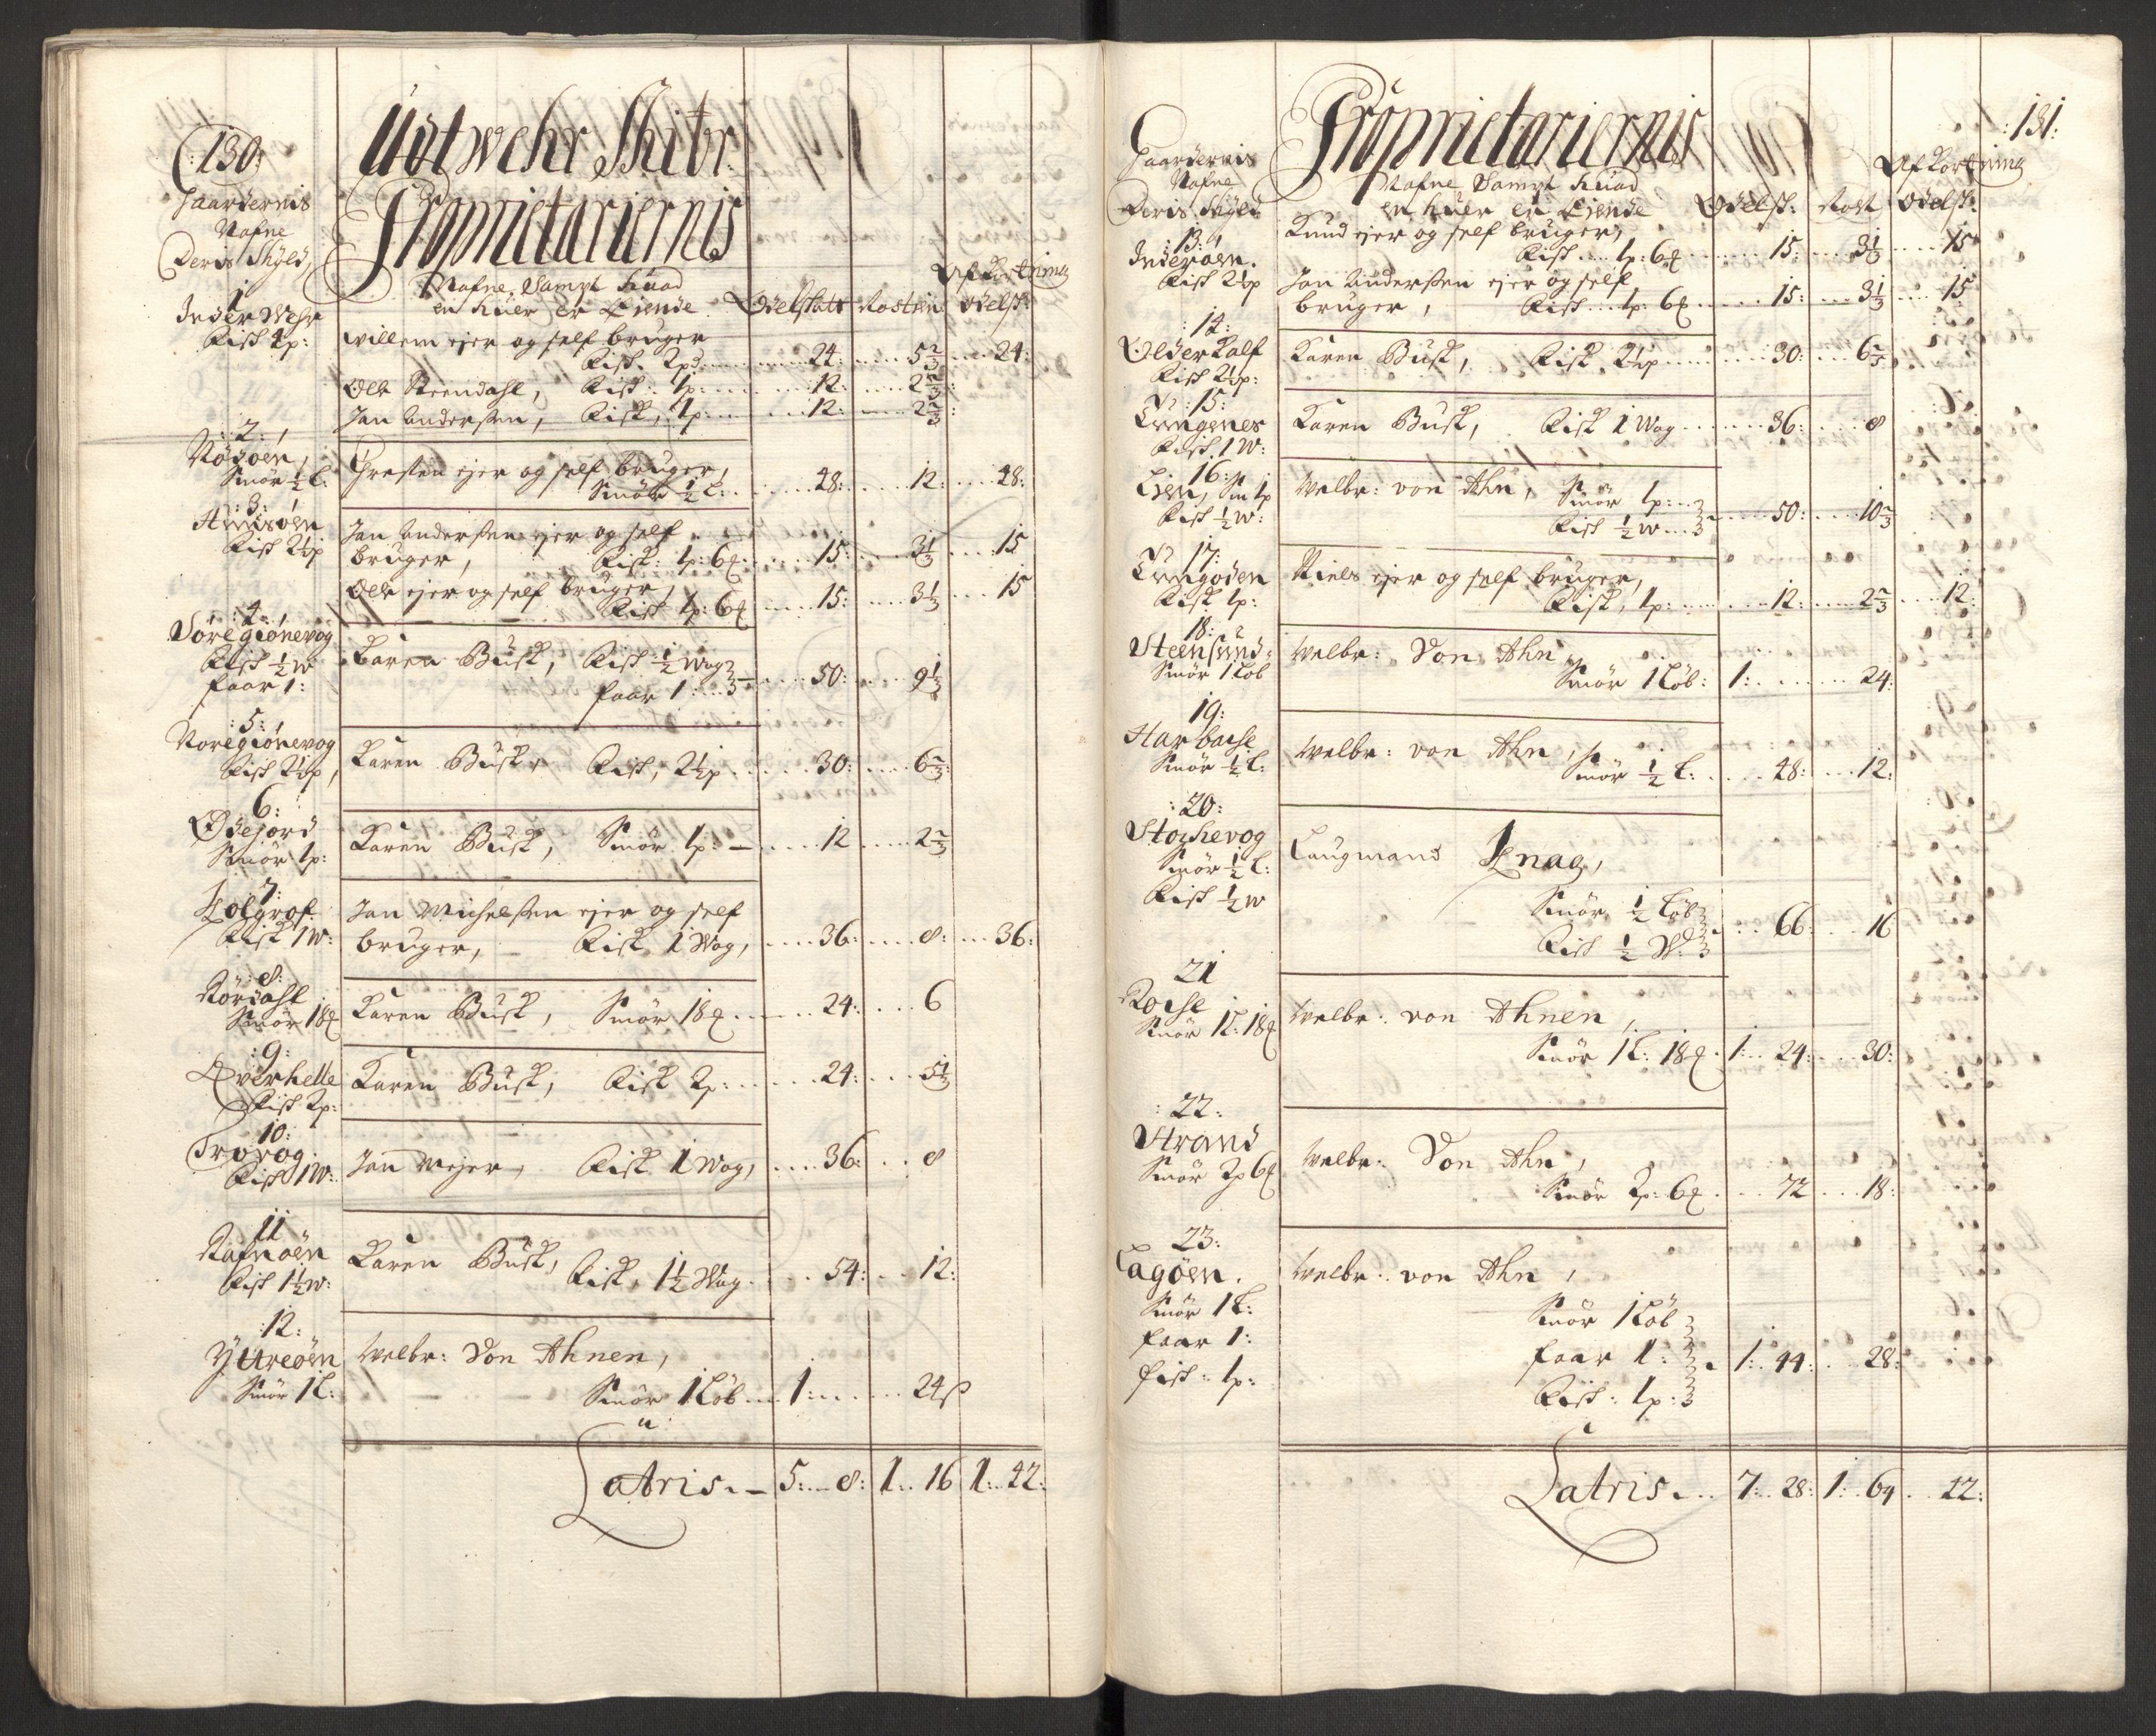 :130:
Udtwehr Skibr:
Gaardernis
Nafne
Deris Skyld,
Proprietariernis
Nafne, Sampt huad
en huer er Eiende
Odelskatt
Rosten
Afkortning
Odelsk:
1
Inderwehr
Fisk 4p:
willem ejer og self bruger
Fisk. 2pd 24: 5 2/3 24:
Ole Steendahl, Fisk: 1p: 12: 2 2/3:
Jan Andersen, Fisk, 1p: 12: 2 2/3:
:2:
Rødøen,
Smør ½ L:
Chresten ejer og self bruger,
Smør ½ L: 48: 12: 48:
:3:
Hennisøen
Fisk 2½p
Jan Andersen ejer og self
bruger, Fisk: 1p: 6℔ 15: 3 1/3 15
Ole ejer og self bruger,
Fisk 1p: 6℔ 15: 3 1/3 15
:4:
Søregiønevog
Fisk ½ w
faar 1:
Karen Busk, Fisk ½ Wog
faar 1: 50: 9 1/3
:5:
Noregiønevog
Fisk 2½p,
Karen Busk, Fisk, 2½p 30: 6 2/3:
6:
Ødejord
Smør 1p:
Karen Busk, Smør 1p: 12 2 2/3
7:
Holgrof:
Fisk 1w:
Jan Michelsen ejer og self
bruger, Fisk 1 Wog, 36: 8: 36:
:8:
Rørdahl
Smør 18℔
Karen Busk, Smør 18℔ 24: 6
:9:
Qverhelle
Fisk 2p:
Karen Busk, Fisk 2p: 24: 5 1/3
10:
Trovog.
Fisk 1w:
Jan Mejer, Fisk 1 Wog, 36: 8
11
Rafnøen
Fisk 1½w:
Karen Busk, Fisk, 1½ Wog 54: 12:
:12:
Yttreøen
Smør 1L:
Welbr: Von Ahnen,
Smør 1 Løb 1: 24 ß
Latris. 5: 8: 1: 16 1: 42:
:131:
Gaardernis
Nafne
Deris Skyld
Proprietariernis
Nafne Sampt huad
en huer er Eiende
Odelsk:
Rost
Afkortning
Odelsk:
:13:
Inderøen.
Fisk 2½p
Knud ejer og self bruger,
Fisk 1p: 6℔ 15: 3 1/3 15
Jan Andersen ejer og self
bruger, Fisk 1p: 6℔ 15: 3 1/3 15
:14:
Olderkalf
Fisk 2½p:
Karen Busk, Fisk 2½p 30: 6 2/3
:15:
Tungenes
Fisk 1w:
Karen Busk, Fisk 1 Wog 36: 8
16:
Lien, Sm 1p
Fisk ½w:
Welbr: von Ahn, Smør 1p:
Fisk ½ w 50: 10 2/3
17:
Tungoden
Fisk 1p:
Niels ejer og self bruger,
Fisk, 1p: 12: 2 2/3 12:
18:
Steensund:
Smør 1 Løb
Welbr: Von Ahn,
Smør 1 Løb: 1: 24:
19:
Harbache
Smør ½ L:
Welbr: von Ahn,
Smør ½ L: 48: 12:
:20:
Stochevog
Smør ½ L:
Fisk ½ w
Laugmand Knag,
Smør ½ Løb
Fisk ½ W: 66: 16
21
Roche
Smør 1L: 18℔
Welbr: von Ahnen,
Smør 1L: 18℔ 1: 24: 30:
:22:
Strand
Smør 2p 6℔
Welbr: Von Ahn,
Smør 2p: 6℔ 72 18:
23:
Lagøen.
Smør 1L:
faar 1:
fisk: 1p:
Welbr: von Ahn,
Smør 1 Løb
faar 1:
Fisk: 1p: 1: 44: 28:
Latris. 7: 28: 1: 64 42: